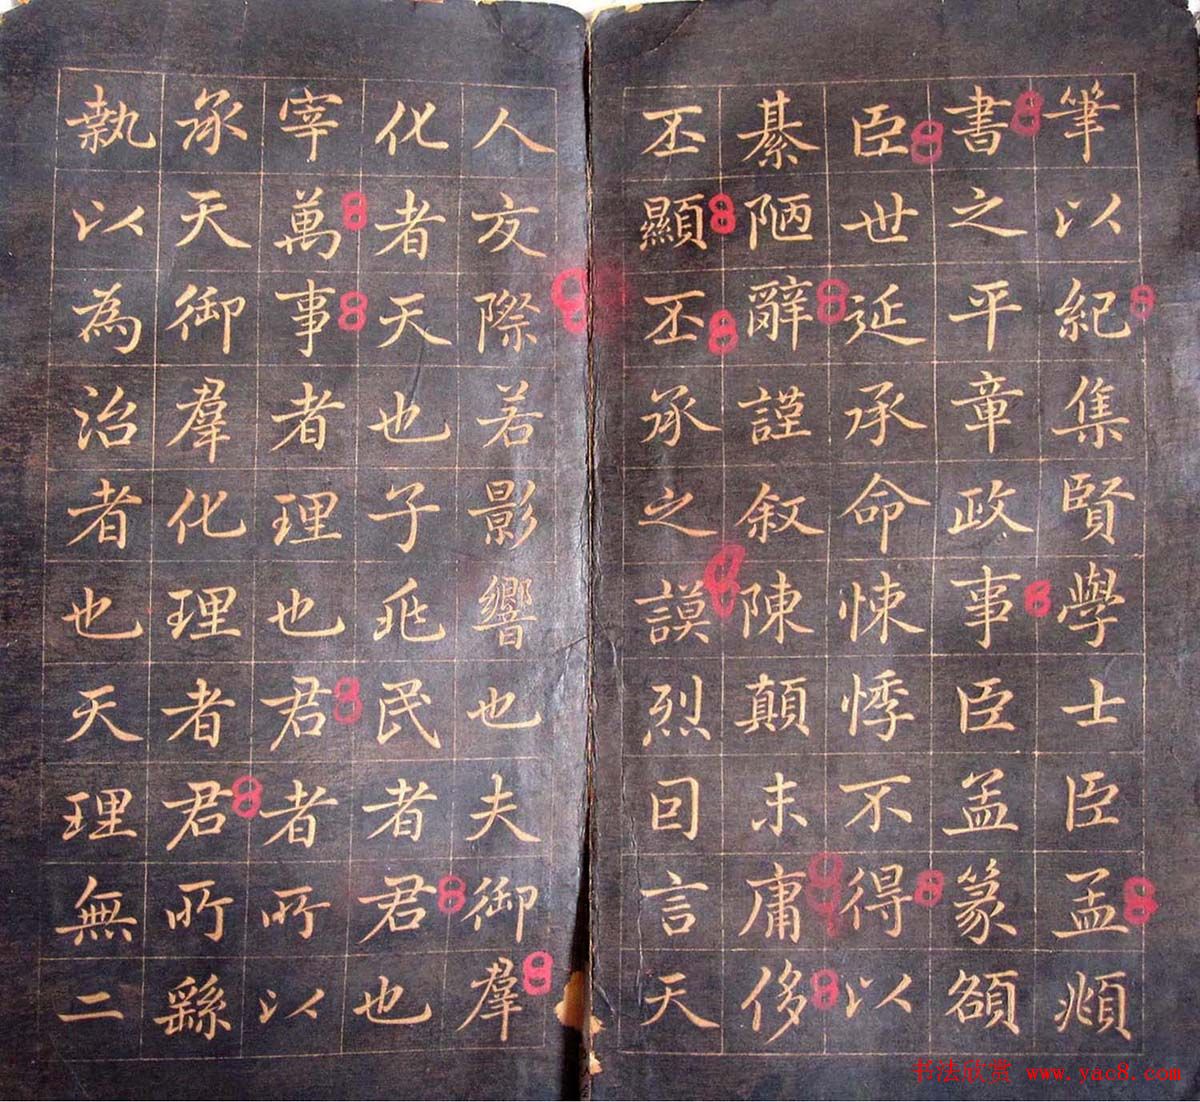 筆以紀集賢學士臣孟頫
書之平章政事臣孟篆額
臣世延承命悚悸不得以
綦陋辭謹敘陳顛末庸侈
丕顯丕承之謨烈囙言天
人交際若影響也夫御羣
化者天也子兆民者君也
宰萬事者理也君者所以
承天御羣化理者君所繇
執以為治者也天理無二
书法欣赏 www.yac8.com